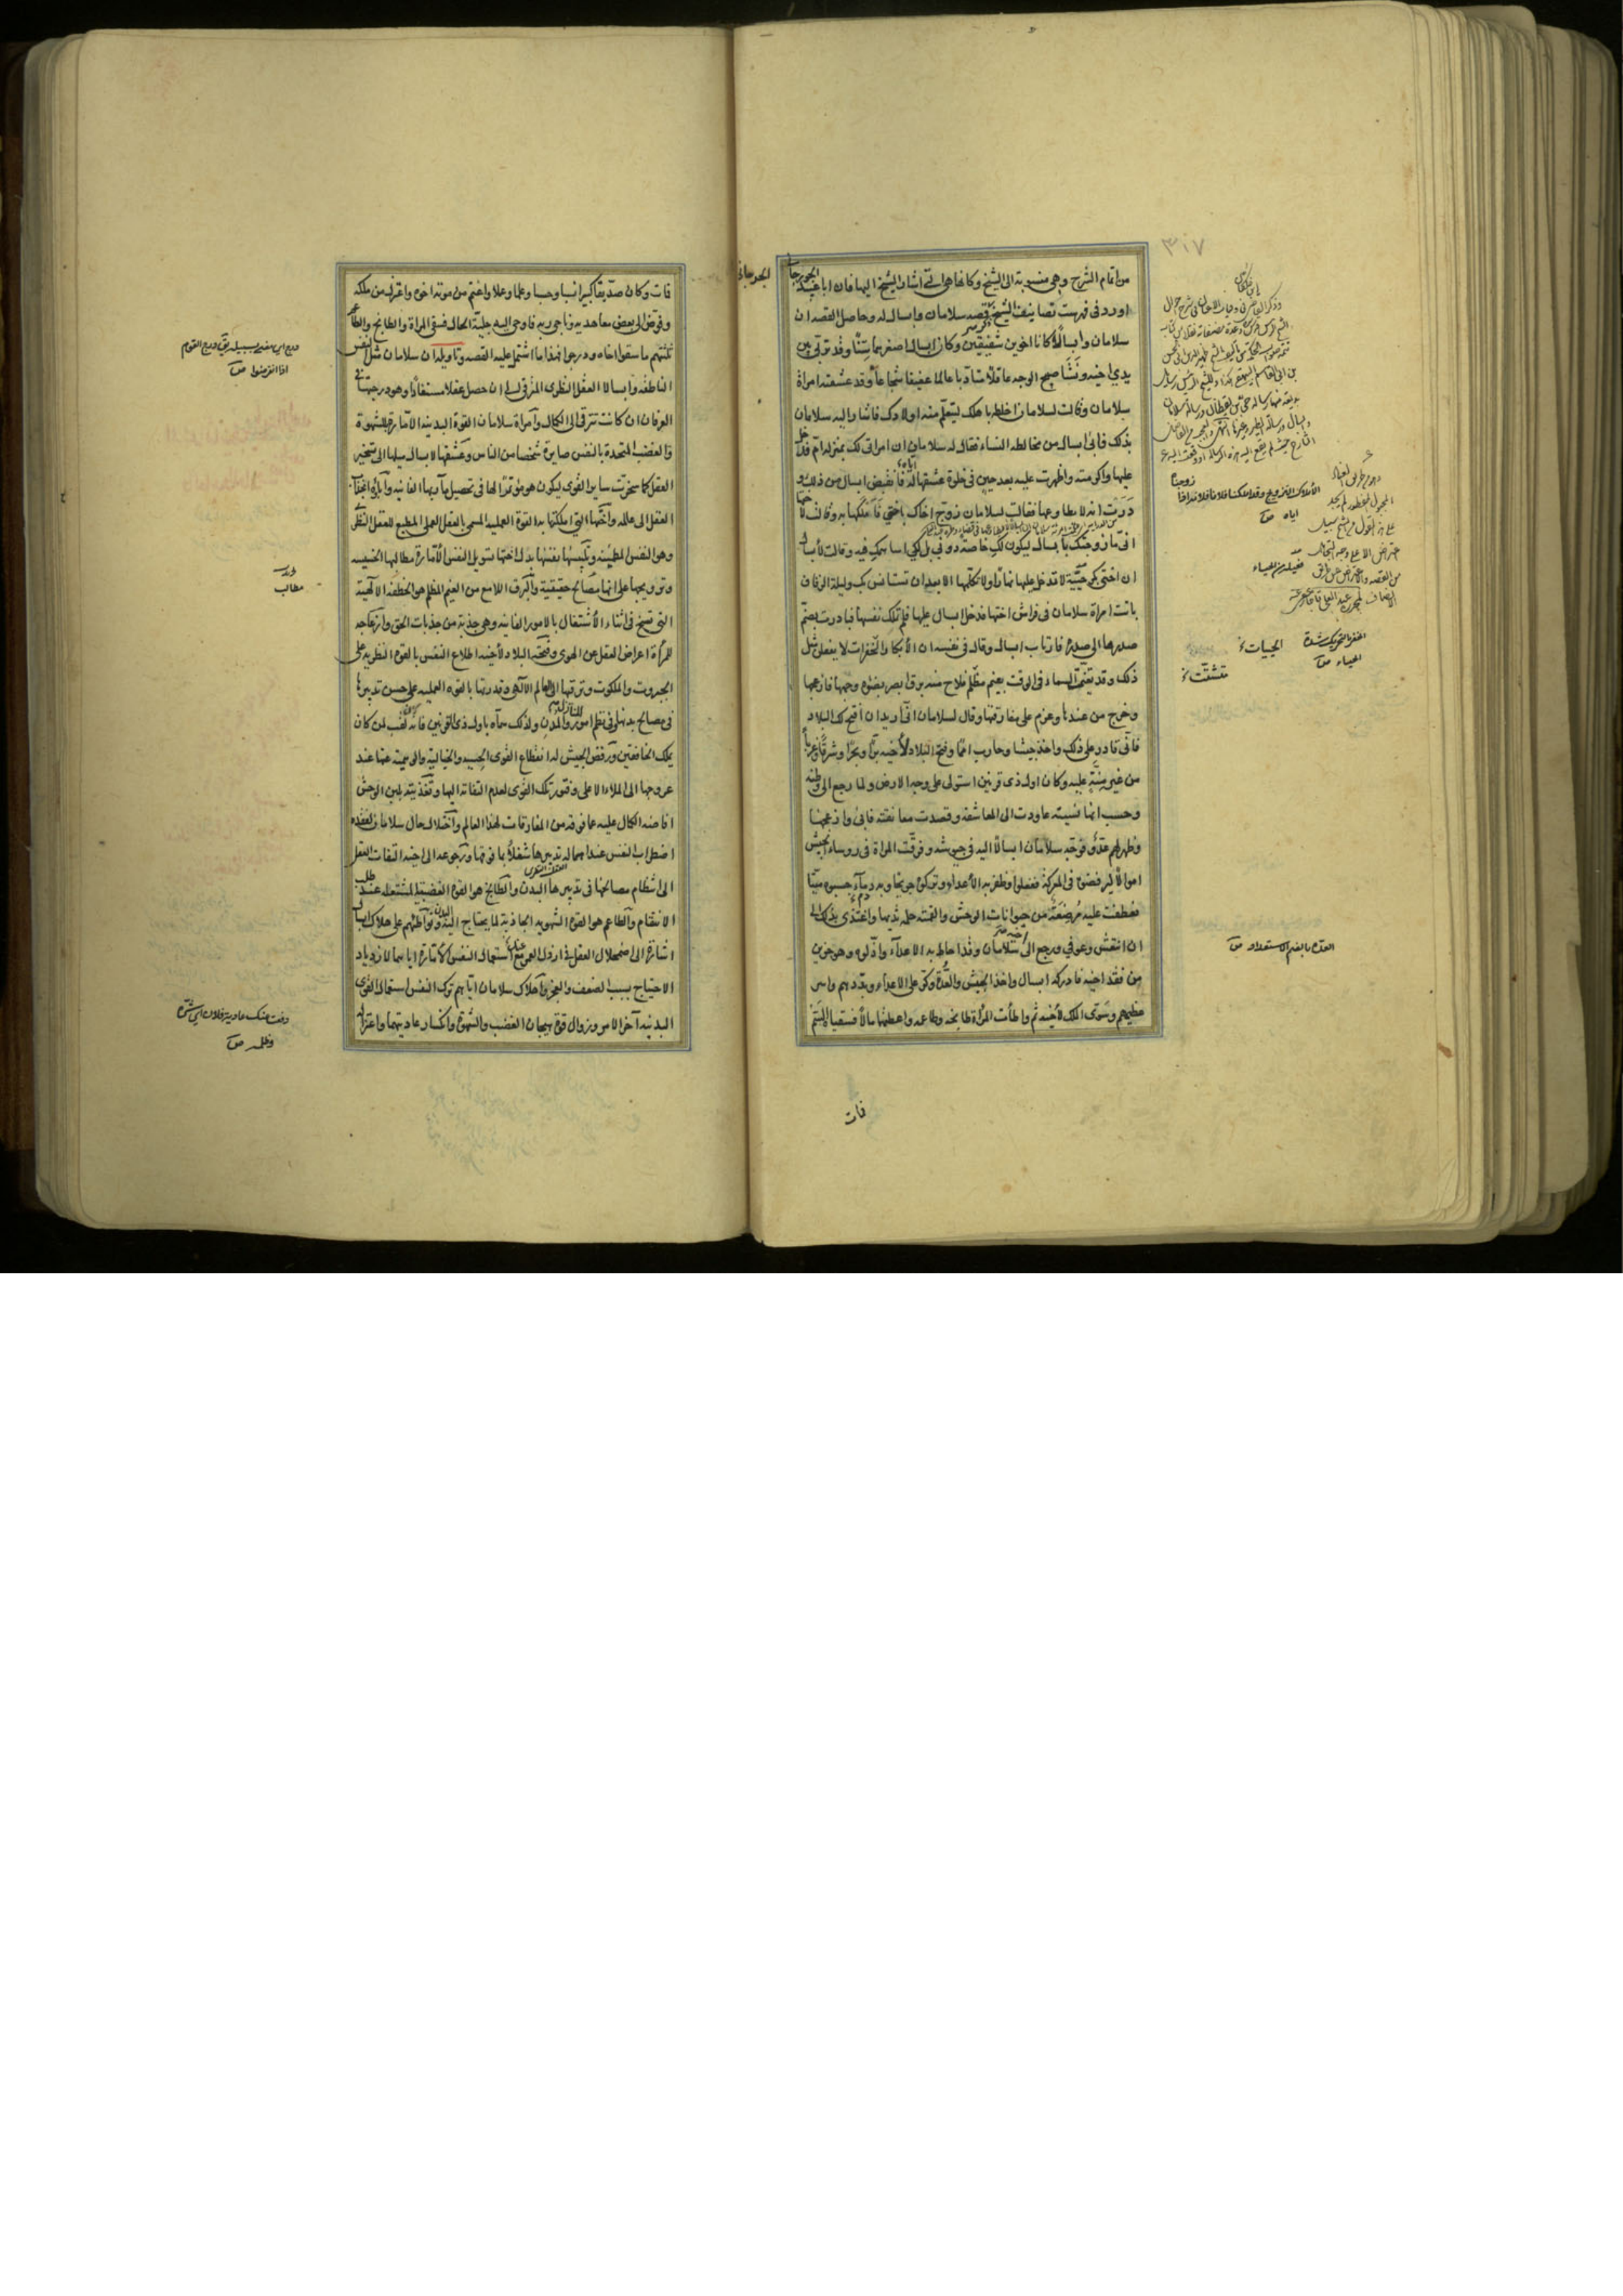 من اتمام الشرح وهي منسوبة الى الشيخ وكانها هي التي اشار الشيخ اليها فان ابا عبيد الجوزجاني
اورد في فهرست تصانيف الشيخ قصه سلامان وابسال له وحاصل القصه ان
سلامان وابسالاً كانا اخوين شقيقين وكان ابسال اصغرهما سِنّاً وقد تربّى بين
يدي اخيه ونَشَأ صبيح الوجه عاقلاً متادّبا عالما عفيفا شجاعاً وقد عشقته امراة
سلامان وقالت لسلامان اخلطه باهلك ليتعلّم منه اولادك فاشار اليه سلامان
بذلك فابى ابسال من مخالطه النساء فقال له سلامان ان امراتي لك بمنزله ام فدخل
عليها واكرمته واظهرت عليه بعد حين في خلوة عشقها له فانقبض ابسال من ذلك و
دَرَت انه لا يطاوعها فقالت لسلامان زوج اخاك باختي فَاَملكها به وقالت لاختها
انى ما زوجتك بابسال ليكون لكِ خاصّه دوني بل لكي اساهمكِ فيه وقالت لابسال
ان اختي بكر حَيِيّة لا تدخل عليها نهارًا ولا تكلّمها الا بعد ان تستانس بك وليلة الزفاف
باتت امراة سلامان في فراش اختها فدخل ابسال عليها فلم تملك نفسها فبادرت بضم
صدرها الى صدره فارتاب ابسال وقال في نفسه ان الأبكار الخَفِرات لا يفعلن مثل
ذلك وقد تغيّم السماء في الوقت بغيم مظلم فلاح منه برق ابصر بضوئه وجهها فازعجها
وخرج من عندها وعزم على مفارقتها وقال لسلامان انّى اريد ان افتح لك البلاد
فانّى قادر على ذلك واخذ جيشا وحارب امما وفتح البلاد لأخيه برّا وبحرا وشرقا وغربا
من غير مِنّةٍ عليه وكان اول ذى قرنين استولى على وجه الارض ولما رجع الى وطنه
وحسب انها نسيته عاودت الى المعاشقه وقصدت معانقته فابى وازعجها
وظهر لهم عدوّ فوجّه سلامان ابسالا اليه في جيوشه وفرّقت المراة في روساء الجيش
اموالا ليرفضوه في المعركة ففعلوا وظفر به الأعداء وتركوه جريحا وبه دماء حسبوه ميّتا
فعطفت عليه مُرضِعَة من حيوانات الوحش والقمته حلمه ثديها واغتذى بذلك الى
ان انتعش وعوفي ورجع الى سلامان وقد احاط به الاعداء واذلّوه وهو حزين
من فقد اخيه فادركه ابسال واخذ الجيش والعُدّة وكرّ على الاعداء وبدّدهم واسر
عظيمهم وسَوّى الملك لأخيه ثم واطأت المراة طابخه وطاعمه واعطتهما مالاً فسقياه السَّم
فات
الجوزجاني
٣٠٧
العدّة بالضم الاستعداد ص
الخفر بالتحريك شدة
الحياء ص
فمات وكان صدّيقا كبيرا نسبا وحسبا وعلما وعملا واغتم من موته اخوه واعتزل من ملكه
وفوّض الى بعض معاهديه وناجى ربه فاوحى اليه جليّة الحال فسقى المراة والطابخ والطاعم
ثلثتهم ما سقوا اخاه ودرجوا فهذا ما اشتمل عليه القصه وتاويله ان سلامان مثل للنفس
الناطقه وابسالا للعقل النظرى المترقى الى ان حصل عقلا مستفادًا وهو درجتها في
العرفان ان كانت تترقى الى الكمال وامراة سلامان القوة البدنية الامّارة للشهوة
والغضب المتحدة بالنفس صايرة شخصا من الناس وعشقها لابسال ميلها الى تسخير
العقل كما سخّرت ساير القوى ليكون هو موتمرا لها في تحصيل مآربها الفانيه واباؤه انجذاب
العقل الى عالمه واختها التي املكتها به القوة العمليه المسمى بالعقل العملى المطيع للعقل النظرى
وهو النفس المطمئنه وتلبيسها نفسها بدل اختها تسويل النفس الأمّارة مطالبها الخسيسه
وترويجها على انها مصالح حقيقية والبرق اللامع من الغيم المظلم هو الخطفه الالهية
التي تسنح في اثناء الأشتغال بالامور الفانيه وهي جذبة من جذبات الحق وازعاجه
للمرأة اعراض العقل عن الهوى وفتحه البلاد لأخيه اطلاع النفس بالقوة النظريه على
الجبروت والملكوت وترقيها الى العالم الالهى وقدرتها بالقوه العمليه على حسن تدبيرها
في مصالح بدنها وفي نظم امور المنازل والمدن ولذلك سمّاه باول ذى القرنين فانه لقب لمن كان
يملك الخافقين ورفض الجيش له انقطاع القوى الحسيه والخيالية والوهمية عنها عند
عروجها الى الملاء الاعلى وفتور تلك القوى لعدم التفاته اليها وتغذيته بلبن الوحش
افاضه الكمال عليه عما فوقه من المفارقات لهذا العالم واختلال حال سلامان لفقده
اضطراب النفس عند اهماله تدبيرها شغلاً بما فوقها ورجوعه الى اخيه التفات العقل
الى انتظام مصالحها في تدبيرها البدن والطابخ هو القوة الغضبية المشتعله عند طلب
الانتقام والطاعم هو القوة الشهويه الجاذبة لما يحتاج اليه البدن وتواطئهم على هلاك ابسال
اشارة الى اضمحلال العقل في ارذل العمر مع استعمال النفس الأمّارة اياهما لازدياد
الاحتياج بسبب الضعف والعجز واهلاك سلامان ايّاهم ترك النفس استعمال القوى
البدنيه آخر الامر وزوال قوة هيجان الغضب والشهوة وانكسار عاديتهما واعتزاله
درج القوم
اذا انقرضوا ص
مطالب
دفعت عنك عادية فلان اى شرّه
وظلمه ص